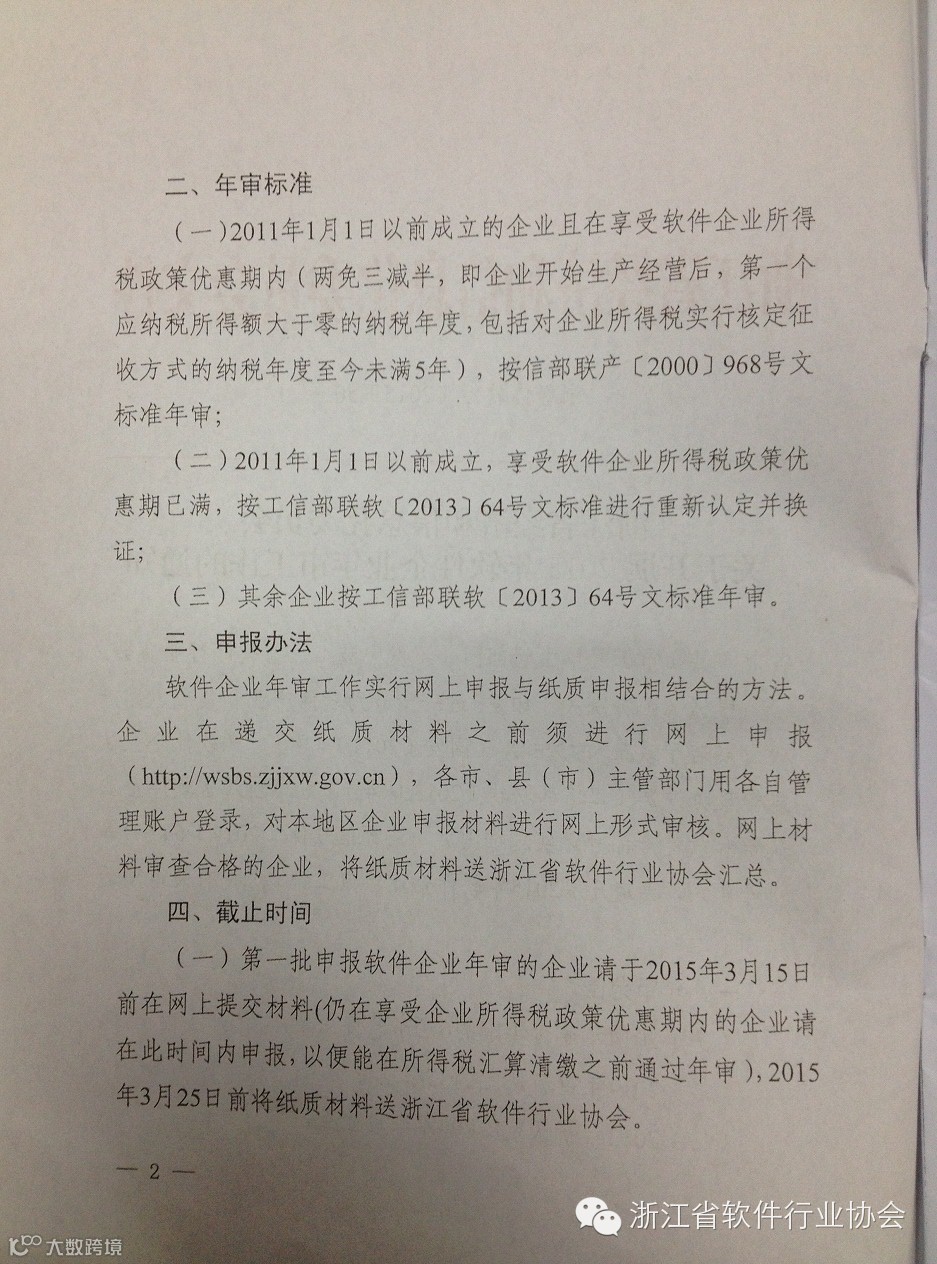 二、年审标准
（一）2011年1月1日以前成立的企业且在享受软件企业所得
税政策优惠期内（两免三减半，即企业开始生产经营后，第一个
应纳税所得额大于零的纳税年度，包括对企业所得税实行核定征
收方式的纳税年度至今未满5年），按信部联产〔2000〕968号文
标准年审；
（二）2011年1月1日以前成立，享受软件企业所得税政策优
惠期已满，按工信部联软〔2013〕64号文标准进行重新认定并换
证；
（三）其余企业按工信部联软〔2013〕64号文标准年审。
三、申报办法
软件企业年审工作实行网上申报与纸质申报相结合的方法。
企业在递交纸质材料之前须进行网上申报
（http://wsbs.zjjxw.gov.cn），各市、县（市）主管部门用各自管
理账户登录，对本地区企业申报材料进行网上形式审核。网上材
料审查合格的企业，将纸质材料送浙江省软件行业协会汇总。
四、截止时间
（一）第一批申报软件企业年审的企业请于2015年3月15日
前在网上提交材料(仍在享受企业所得税政策优惠期内的企业请
在此时间内申报，以便能在所得税汇算清缴之前通过年审)，2015
年3月25日前将纸质材料送浙江省软件行业协会。
— 2 —
浙江省软件行业协会
大数跨境